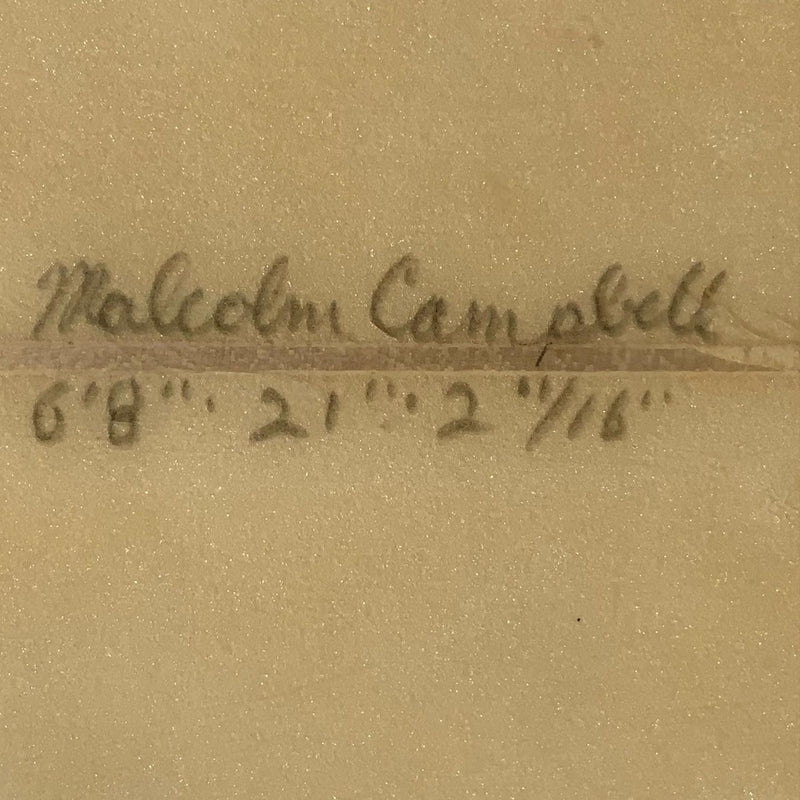 Malcolm Campbell
6'8" · 21" · 2 11/16"